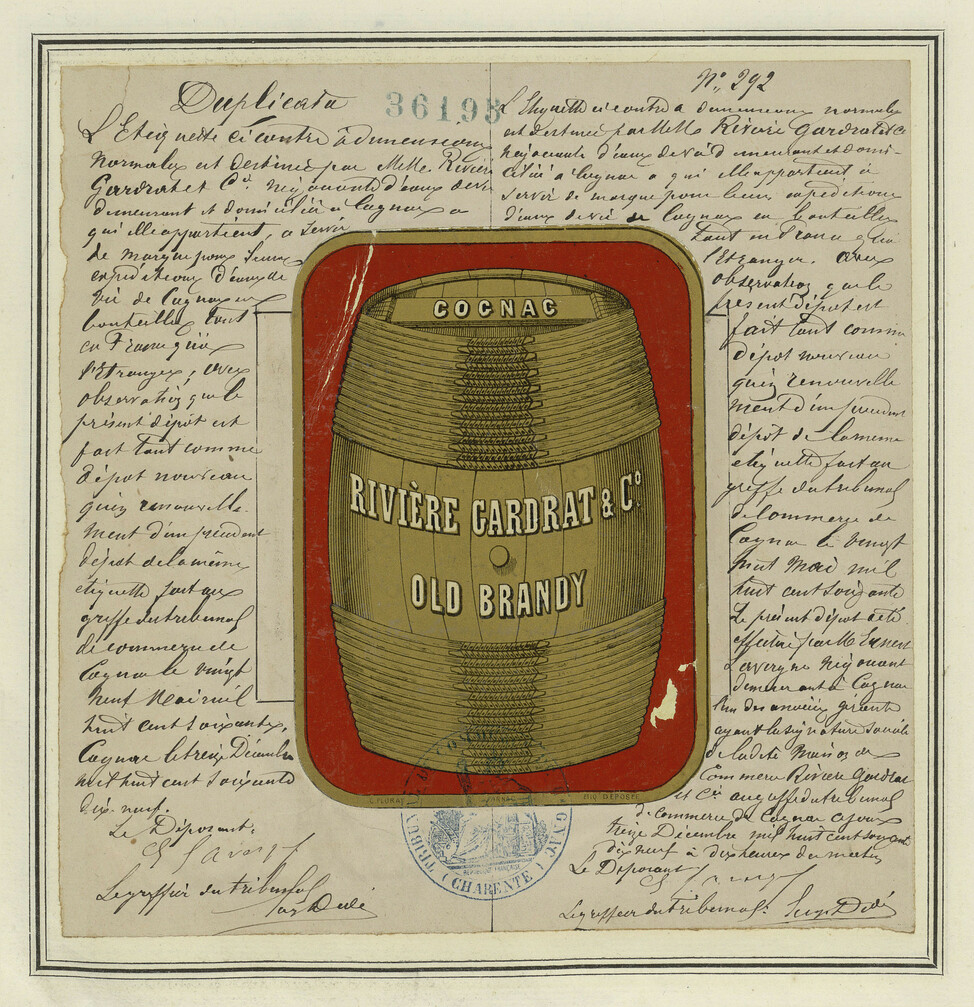 Duplicata
36193
L'Etiquette ci contre à dimensions
Normales est destinée par MMs Rivière
Gardrat et Cie Négociants d'eaux de vie
demeurant et domiciliés à Cognac a
qui elle appartient, a servir
de marque pour leurs
expéditions d'eaux de
vie de Cognac en
bouteilles tant
en France qu'à
l'Etranger, avec
observation que le
présent dépôt est
fait tant comme
dépôt nouveau
qu'en renouvelle-
ment d'un précédent
dépôt de la même
étiquette fait au
greffe du tribunal
de commerce de
Cognac le vingt
neuf Mai mil
huit cent soixante,
Cognac le treize Décembre
mil huit cent soixante
dix-neuf.
Le Déposant,
Le greffier du tribunal
No, 292
L'Etiquette ci contre a dimensions normales
est destinée par MMs Rivière Gardrat & Cie
négociants d'eaux de vie demeurant et domi-
ciliés à Cognac a qui elle appartient à
servir de marque pour leurs expéditions
d'eaux de vie de Cognac en bouteilles
tant en France qu'à
l'Etranger. avec
observation que le
présent dépôt est
fait tant comme
dépôt nouveau
qu'en renouvelle
ment d'un précédent
dépôt de la même
étiquette fait au
greffe du tribunal
de Commerce de
Cognac le vingt
huit Mai mil
huit cent soixante
Le présent dépôt a été
effectué par M. Ernest
Lavergne Négociant
demeurant à Cognac
l'un des associés gérants
ayant la signature sociale
de la dite Maison de
Commerce Rivière Gardrat
et Cie au greffe du tribunal
de commerce de Cognac ce jour
treize Décembre mil huit cent soixante
dix neuf à dix heures du matin
Le Déposant
Le greffier du Tribunal:
COGNAC
RIVIÈRE GARDRAT & Co
OLD BRANDY
TRIBUN
GNAC
RÉPUBLIQUE FRANÇAISE
(CHARENTE)